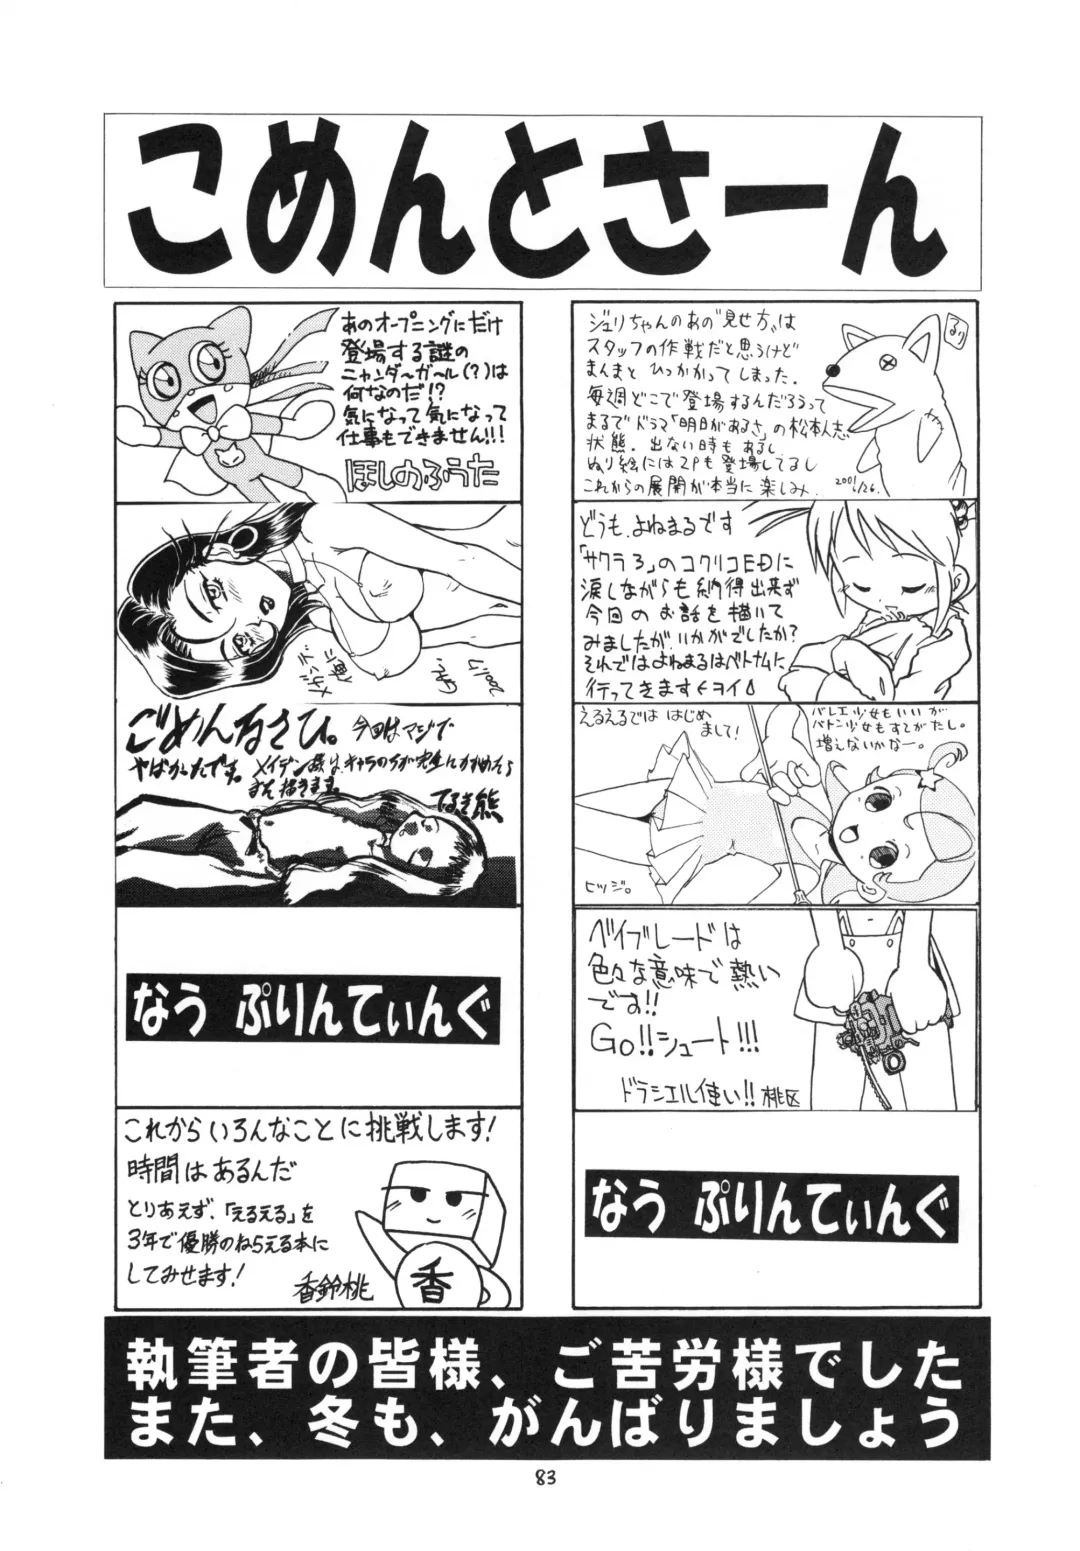 こめんとさーん
ジェリちゃんのあの"見せ方"は
スタッフの作戦だと思うけど
まんまと ひっかかってしまった.
毎週どこで登場するんだろうって
まるでドラマ「明日があるさ」の松本人志
状態. 出ない時もあるし
ぬり絵には2Pも登場してるし
これからの展開が本当に楽しみ.
2001 6/26.
るり
どうも、よねまるです
「サクラ3」のコクリコEDに
涙しながらも納得出来ず
今回のお話を描いて
みましたがいかがでしたか?
それではよねまるはベトナムに
行ってきます
えるえるでは はじめ
まして!
バレエ少女もいいが
バトン少女もすてがたし。
増えないかなー。
ヒツジ。
ベイブレードは
色々な意味で熱い
です!!
Go!!シュート!!!
ドラシエル使い!! 桃区
なう ぷりんてぃんぐ
あのオープニングにだけ
登場する謎の
ニャンダ〜ガ〜ル(?)は
何なのだ!?
気になって気になって
仕事もできません!!!
ほしのふうた
メガンテ..
2001.7
ごめんなさひ。今回はマジで
やばかったです。
また描きます。
なき熊
なう ぷりんてぃんぐ
これからいろんなことに挑戦します!
時間はあるんだ
とりあえず、「えるえる」を
3年で優勝のねらえる本に
してみせます!
香鈴桃
香
執筆者の皆様、ご苦労様でした
また、冬も、がんばりましょう
83